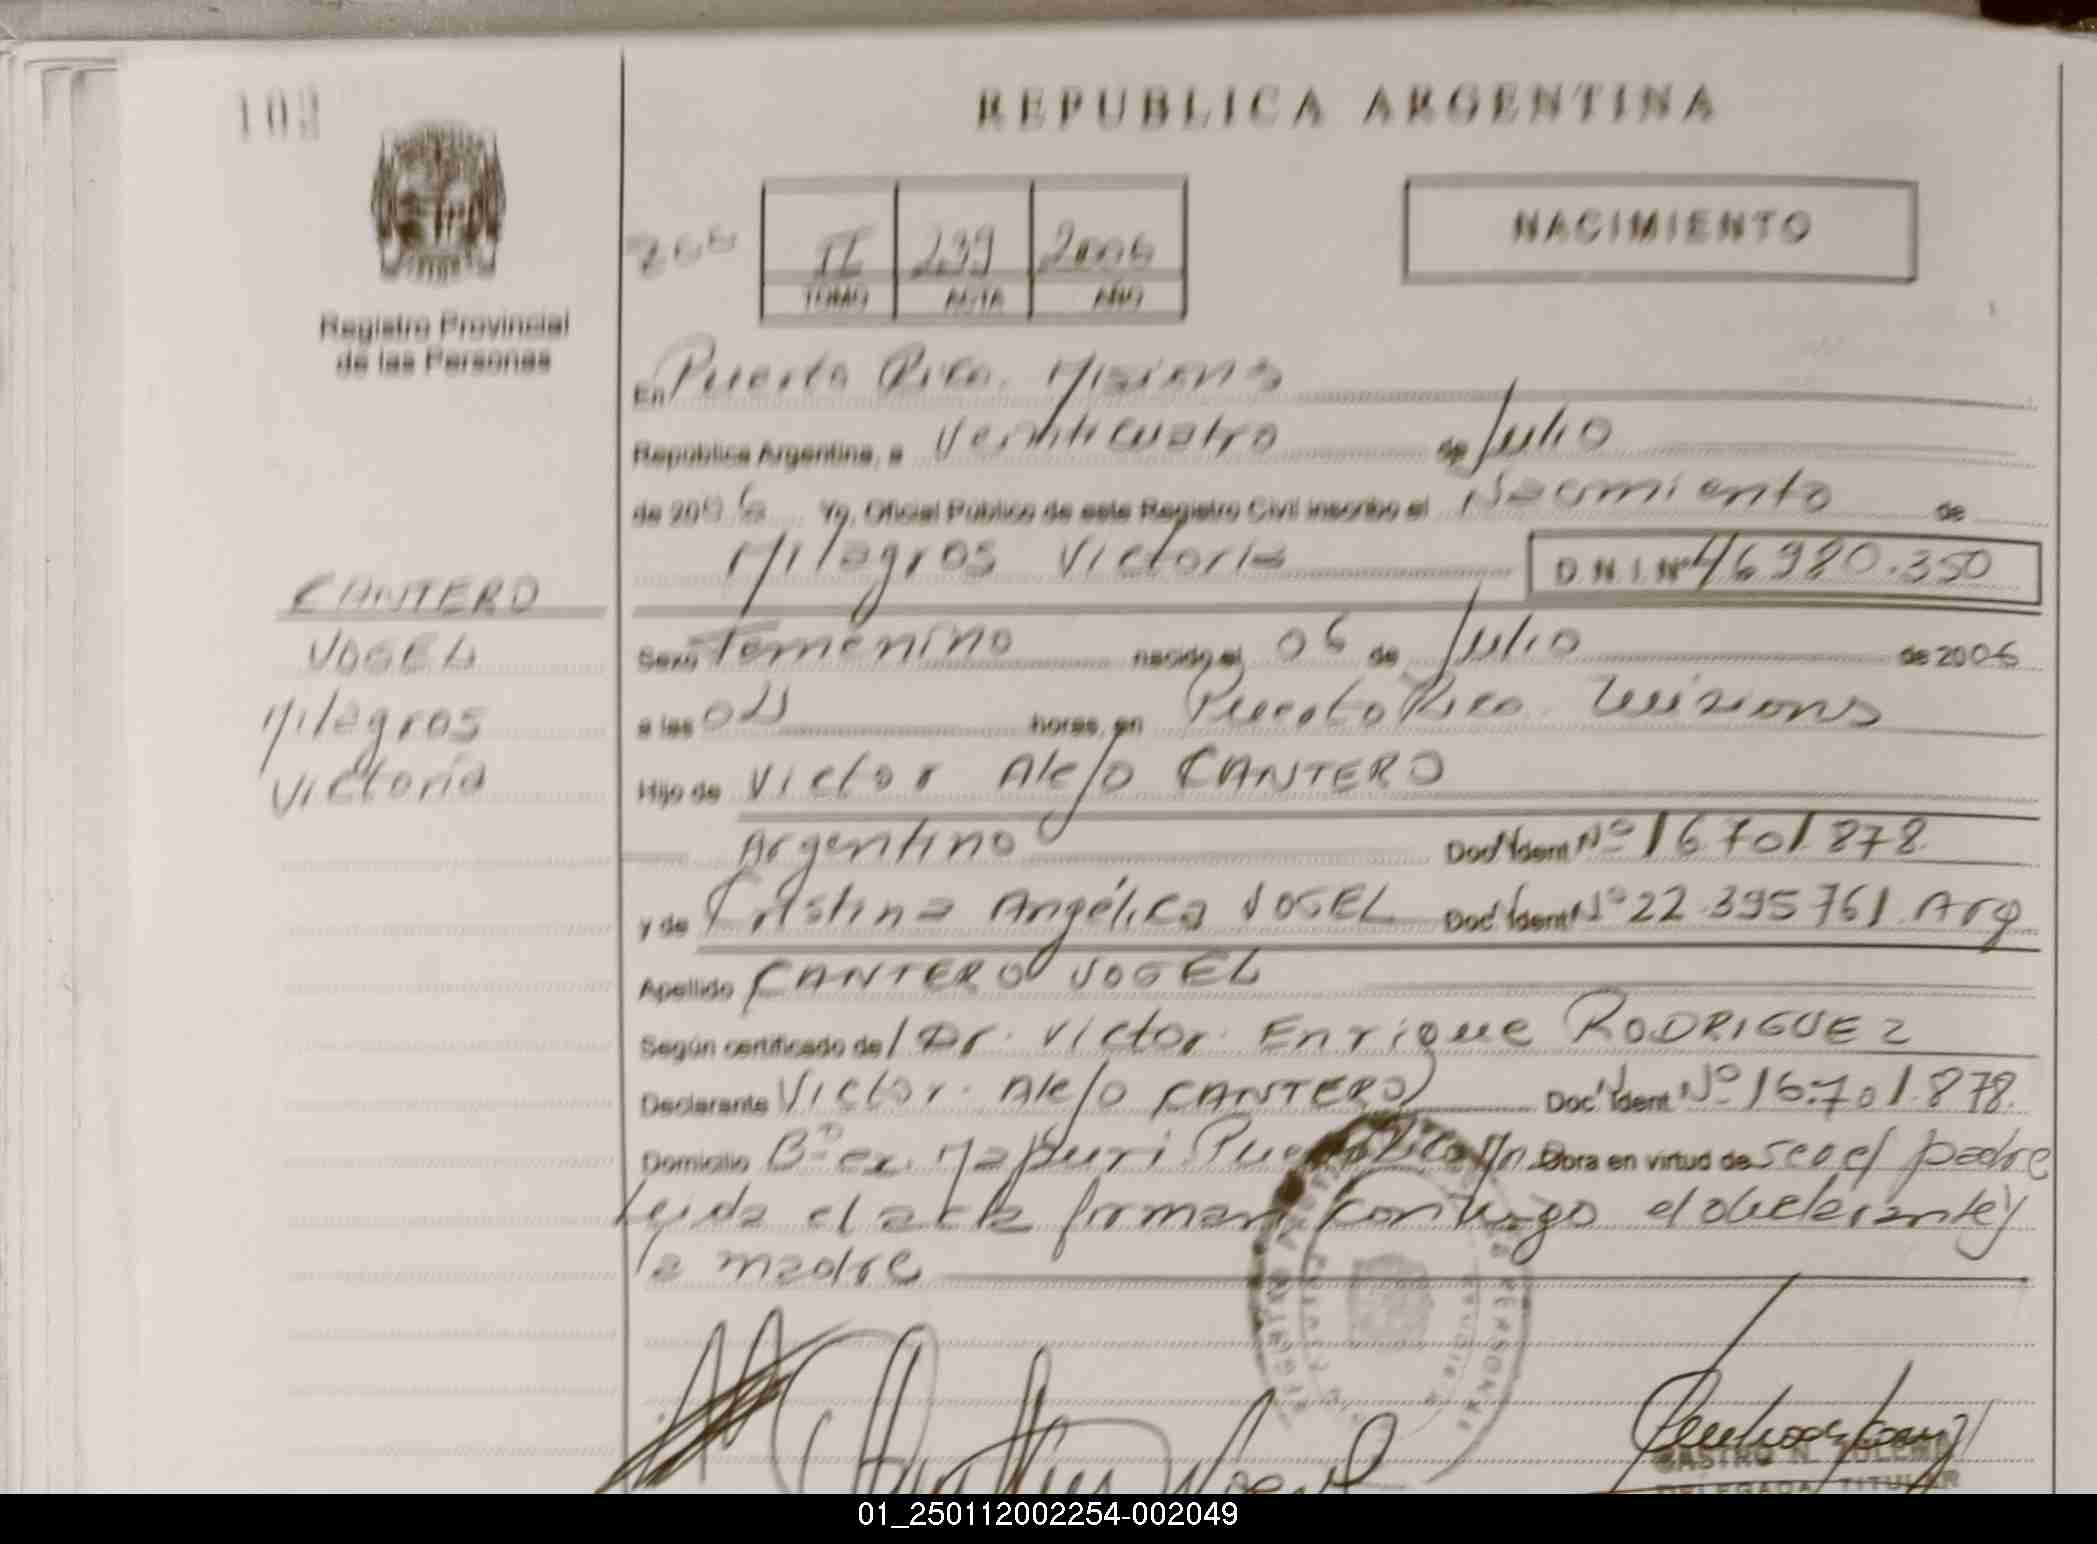 102
REPUBLICA ARGENTINA
NACIMIENTO
II 239 2006
TOMO ACTA AÑO
Registro Provincial
de las Personas
En Puerto Rico. Misions
República Argentina, a Veinticuatro de Julio
de 2006 Yo, Oficial Público de este Registro Civil inscribo el Nacimiento de
Milagros Victoria D.N.I. Nº 46980.350
CANTERO
VOGEL
Milagros
Victoria
Sexo Femenino nacido el 06 de Julio de 2006
a las horas, en Puerto Rico Misions
Hijo de Victor Alejo CANTERO
Argentino Doc. Ident Nº 16701878
y de Cristina Angélica VOGEL Doc. Ident Nº 22.395761 Arg
Apellido CANTERO VOGEL
Según certificado del Dr. Victor Enrique RODRIGUEZ
Declarante Victor Alejo CANTERO Doc. Ident Nº 16.701.878.
Domicilio Bº ex. Puerto Rico Obra en virtud de ser el padre
Leida el acta firman conmigo el declarante y
la madre
CASTRO N.
DELEGADA TITULAR
01_250112002254-002049